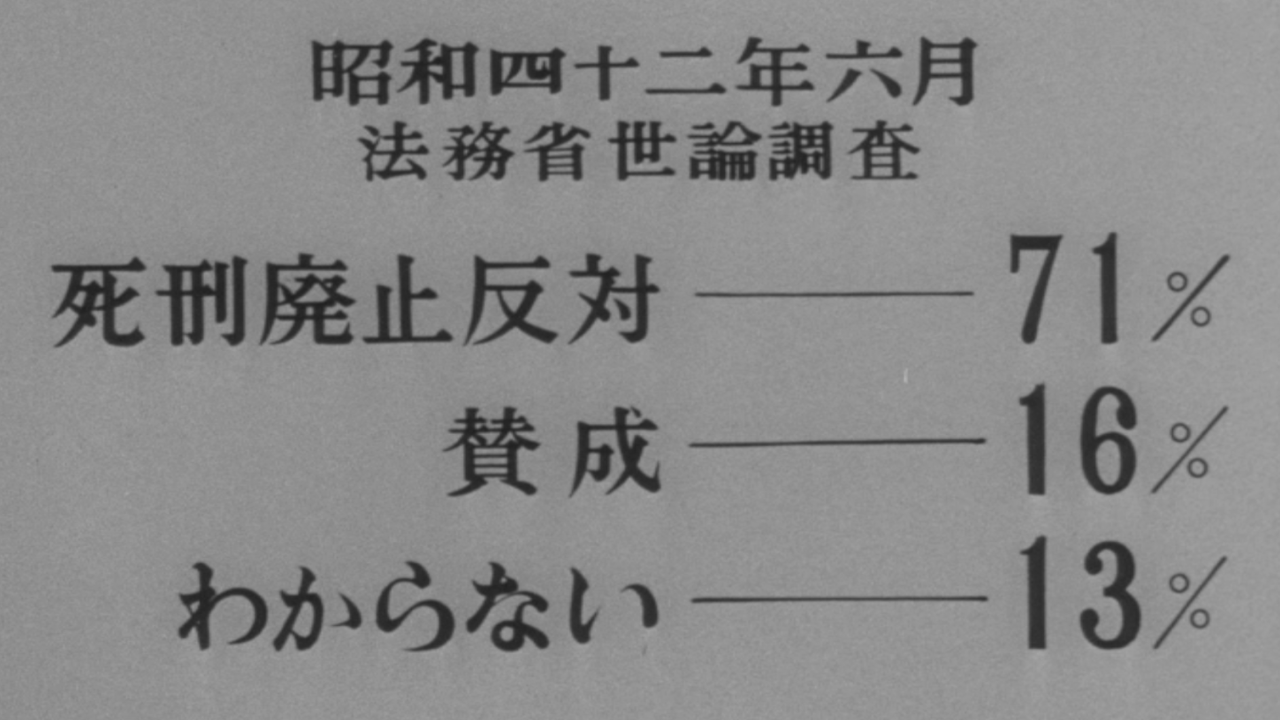 昭和四十二年六月
法務省世論調査
死刑廃止反対 ―― 71%
賛成 ―― 16%
わからない ―― 13%